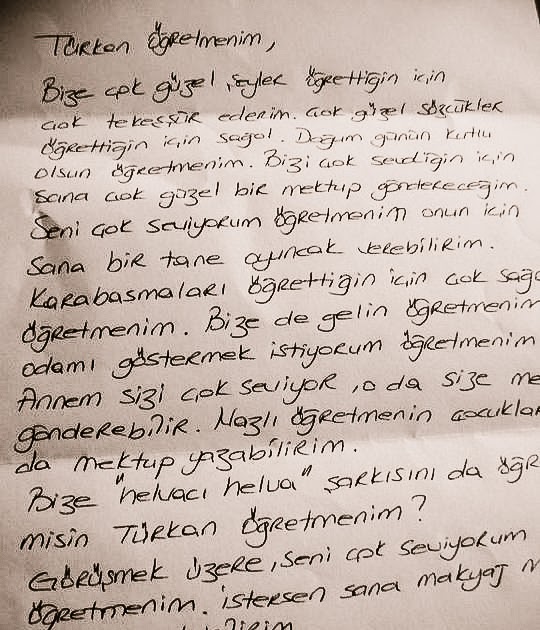 Türkan öğretmenim,
Bize çok güzel şeyler öğrettiğin için
çok tekeşşür ederim. Çok güzel sözcükler
öğrettiğin için sağol. Doğum günün kutlu
olsun öğretmenim. Bizi çok sevdiğin için
sana çok güzel bir mektup göndereceğim.
Seni çok seviyorum öğretmenim onun için
sana bir tane oyuncak verebilirim.
Karabasmaları öğrettiğin için çok sağo
öğretmenim. Bize de gelin öğretmenim
odamı göstermek istiyorum öğretmenim
Annem sizi çok seviyor, o da size me
gönderebilir. Nazlı öğretmenin çocuklar
da mektup yazabilirim.
Bize "helvacı helva" şarkısını da öğr
misin Türkan öğretmenim?
Görüşmek üzere, seni çok seviyorum
öğretmenim. İstersen sana makyaj m